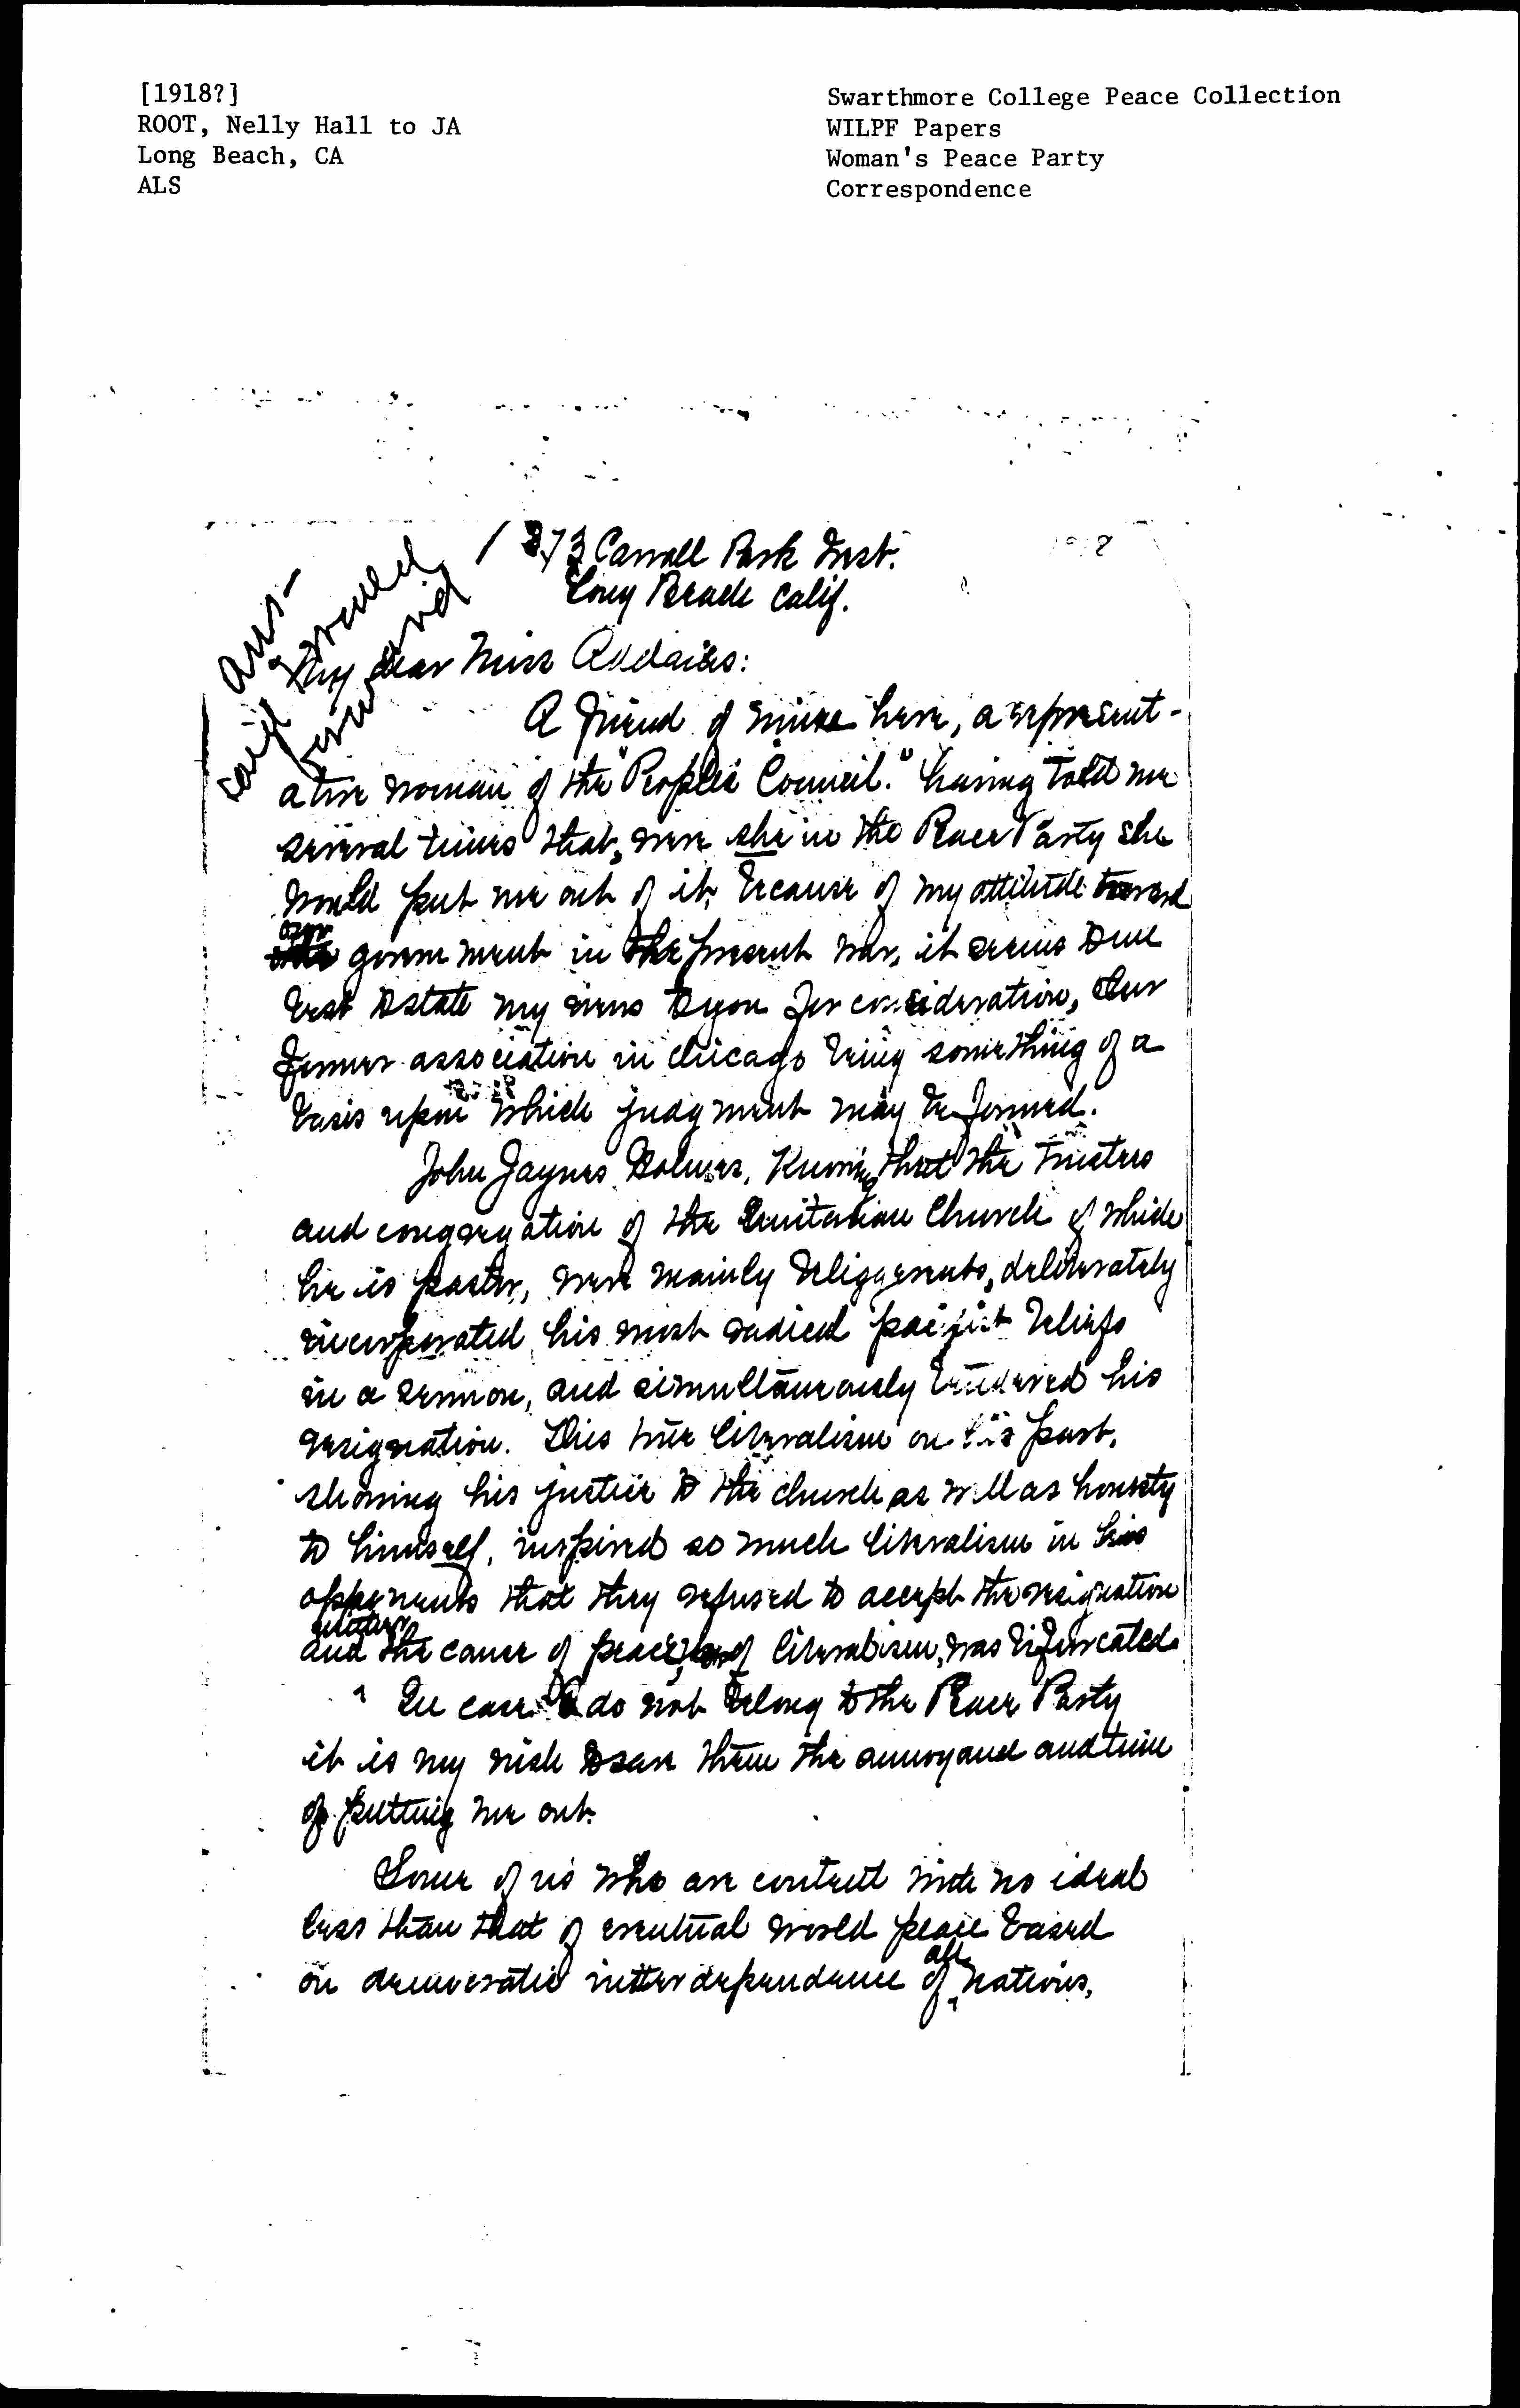 [1918?]
ROOT, Nelly Hall to JA
Long Beach, CA
ALS
Swarthmore College Peace Collection
WILPF Papers
Woman's Peace Party
Correspondence
1373 Carroll Park East.
Long Beach Calif.
1918
ans-
said
My dear Miss Addams:
A friend of mine here, a represent-
ative woman of the "People's Council." having told me
several times that, were she in the Peace Party she
would put me out of it, because of my attitude toward
our government in the present war, it seems to me
best to state my views to you for consideration, Our
former association in Chicago being something of a
basis upon which judgment may be formed.
John Haynes Holmes, knowing that the trustees
and congregation of the Unitarian Church of which
he is pastor, were mainly beligerents, deliberately
incorporated his most radical pacifist beliefs
in a sermon, and simultaneously tendered his
resignation. This true liberalism on his part,
showing his justice to the church as well as honesty
to himself, inspired so much liberalism in his
opponents that they refused to accept the resignation
and the cause of peace, of liberalism, was bifurcated.
In case I do not belong to the Peace Party
it is my wish to save them the annoyance and time
of putting me out.
Some of us who are content with no ideal
less than that of eventual world peace based
on democratic interdependence of all nations,